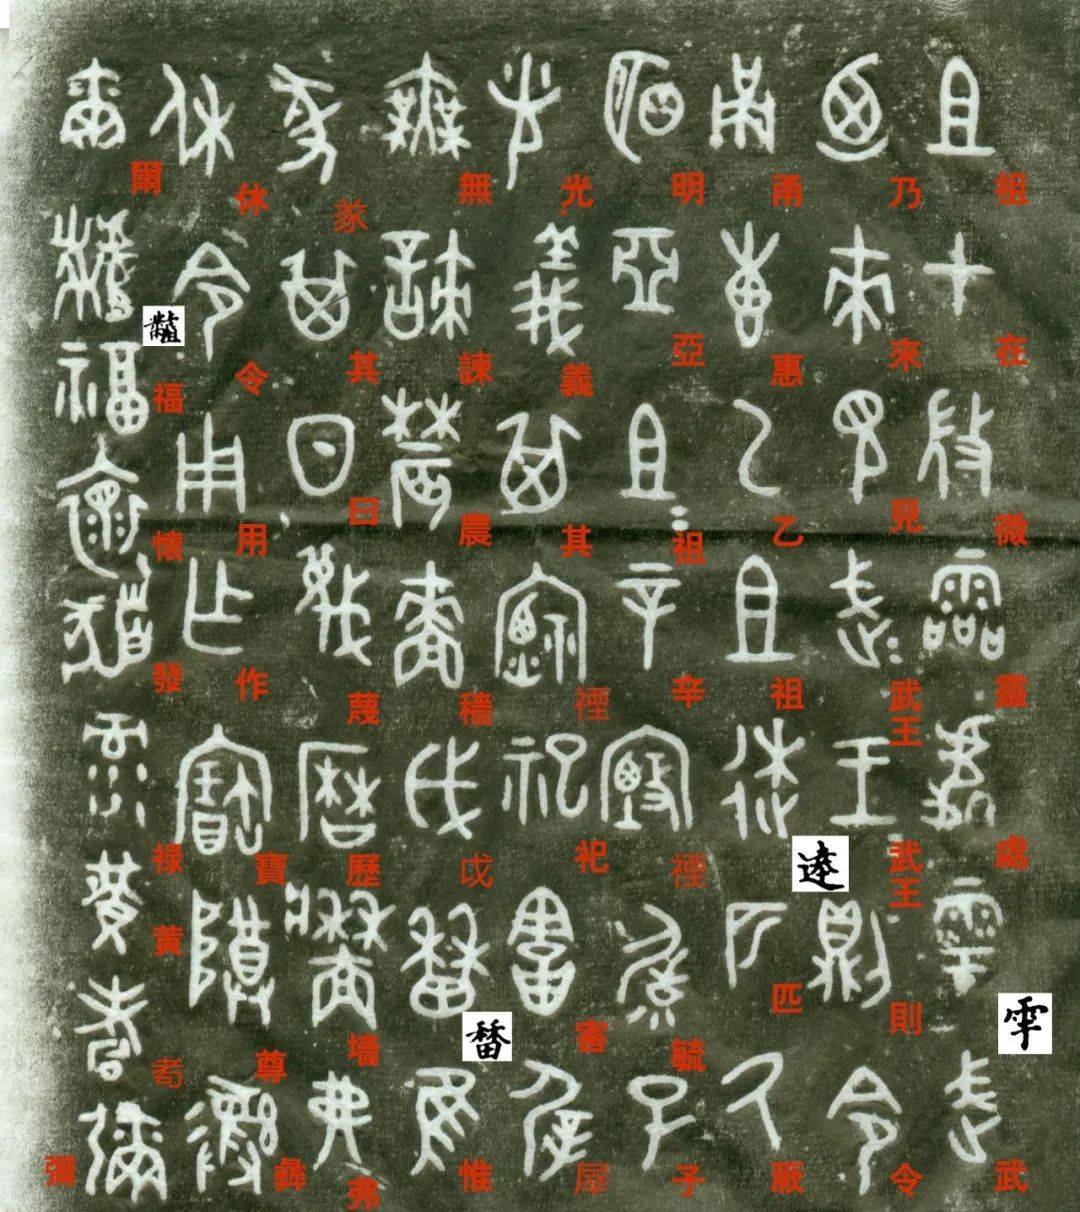 祖在微靈處雩武
乃來見武王武王則令
甬惠乙祖逨匹厥
明亞祖辛禋毓子
光義其禋祀害屖
無諫農穡戉惟
㒸其曰蔑歷墙弗
休令用作寶尊彝
爾福懷發祿黃耇彌